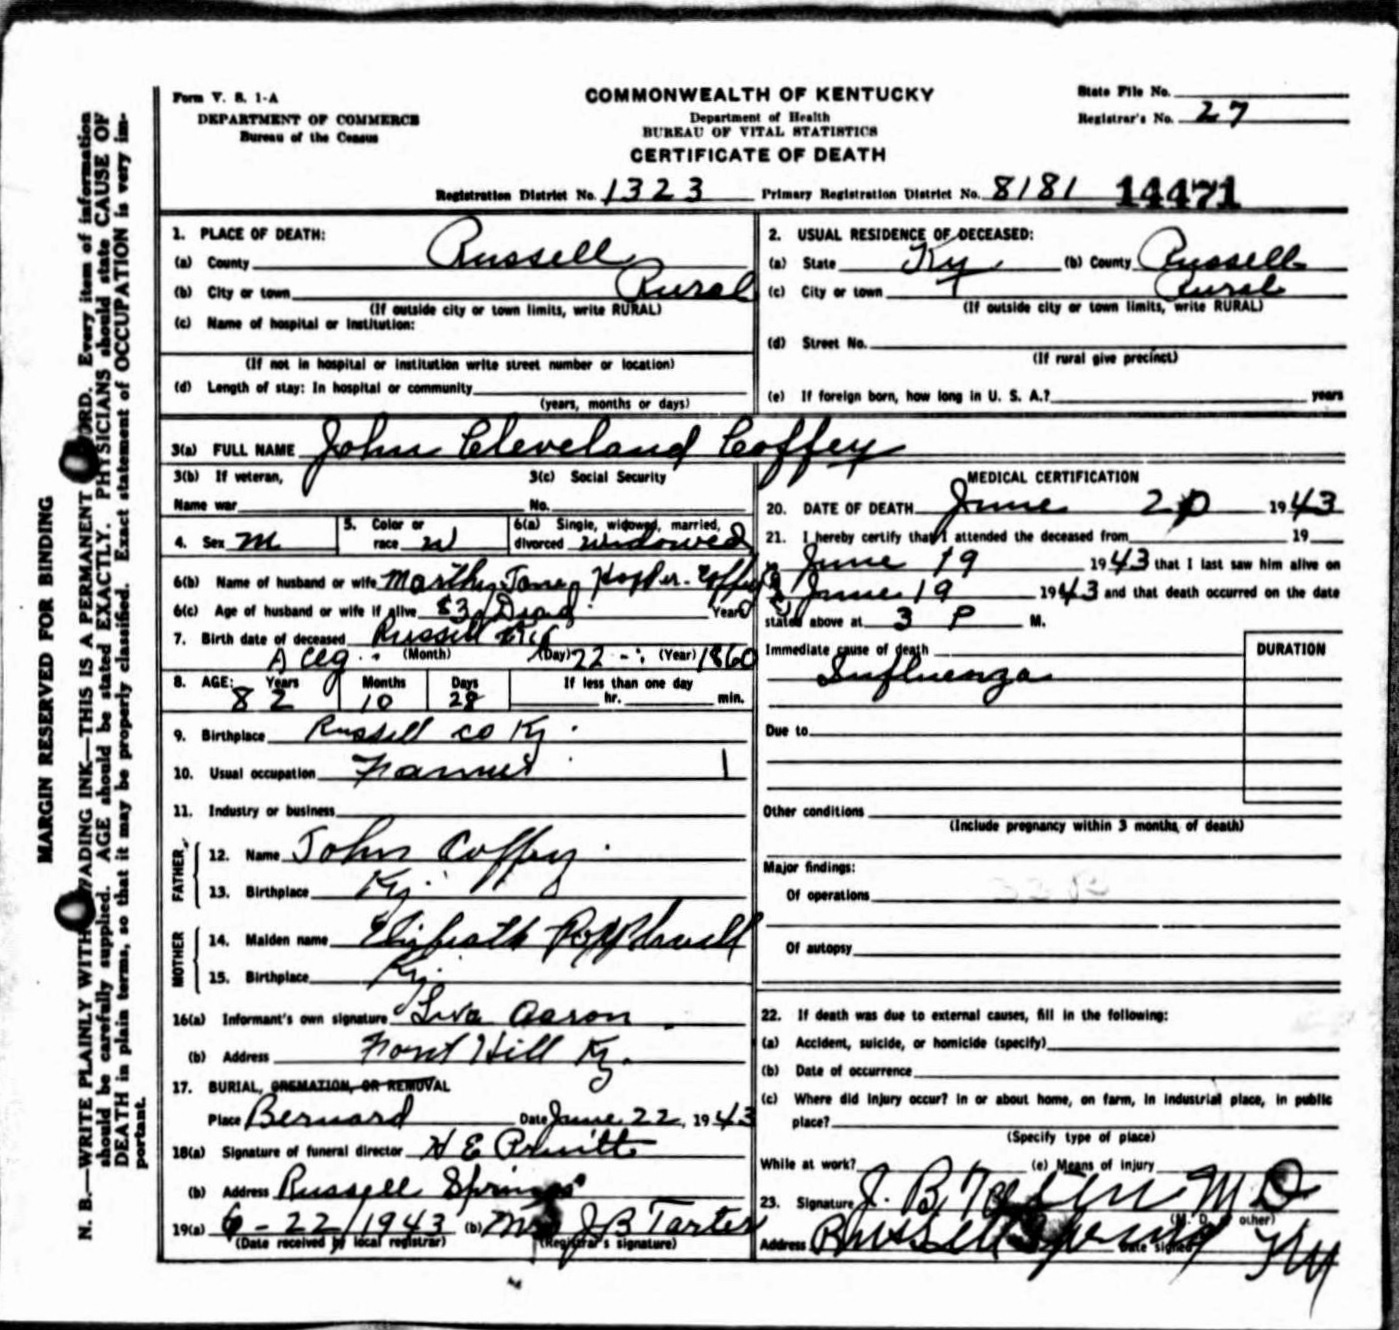 Form V. S. 1-A
DEPARTMENT OF COMMERCE
Bureau of the Census
COMMONWEALTH OF KENTUCKY
Department of Health
BUREAU OF VITAL STATISTICS
CERTIFICATE OF DEATH
State File No.
Registrar's No. 27
Registration District No. 1323 Primary Registration District No. 8181 14471
MARGIN RESERVED FOR BINDING
N. B.—WRITE PLAINLY WITH UNFADING INK—THIS IS A PERMANENT RECORD. Every item of information
should be carefully supplied. AGE should be stated EXACTLY. PHYSICIANS should state CAUSE OF
DEATH in plain terms, so that it may be properly classified. Exact statement of OCCUPATION is very im-
portant.
1. PLACE OF DEATH:
(a) County Russell
(b) City or town Rural
(If outside city or town limits, write RURAL)
(c) Name of hospital or institution:
(If not in hospital or institution write street number or location)
(d) Length of stay: In hospital or community
(years, months or days)
2. USUAL RESIDENCE OF DECEASED:
(a) State Ky (b) County Russell
(c) City or town Rural
(If outside city or town limits, write RURAL)
(d) Street No.
(If rural give precinct)
(e) If foreign born, how long in U. S. A.? years
3(a) FULL NAME John Cleveland Coffey
3(b) If veteran, 3(c) Social Security
Name war No.
4. Sex M 5. Color or race W 6(a) Single, widowed, married, divorced widowed
6(b) Name of husband or wife Martha Jane Hopper-Coffey
6(c) Age of husband or wife if alive 83 Dead Years
7. Birth date of deceased Russell
Aug. (Month) (Day) 22 (Year) 1860
8. AGE: Years Months Days If less than one day
82 10 28 hr. min.
9. Birthplace Russell co Ky.
10. Usual occupation Farmer 1
11. Industry or business
FATHER
12. Name John Coffey
13. Birthplace Ky.
MOTHER
14. Maiden name Elizbeath
15. Birthplace Ky.
16(a) Informant's own signature Liva Aaron
(b) Address Font Hill Ky.
17. BURIAL, CREMATION, OR REMOVAL
Place Bernard Date June 22, 1943
18(a) Signature of funeral director H E Pruitt
(b) Address Russell Springs
19(a) 6-22/1943 (b) Mrs J B Tarter
(Date received by local registrar) (Registrar's signature)
MEDICAL CERTIFICATION
20. DATE OF DEATH June 20 1943
21. I hereby certify that I attended the deceased from 19
June 19 1943 that I last saw him alive on
June 19 1943 and that death occurred on the date
stated above at 3 P M.
Immediate cause of death DURATION
Influenza
Due to
Other conditions
(Include pregnancy within 3 months of death)
Major findings:
Of operations
Of autopsy
22. If death was due to external causes, fill in the following:
(a) Accident, suicide, or homicide (specify)
(b) Date of occurrence
(c) Where did injury occur? In or about home, on farm, in industrial place, in public
place?
(Specify type of place)
While at work? (e) Means of injury
23. Signature J. B. M D
(M. D. or other)
Address Russell Springs Date signed Ky